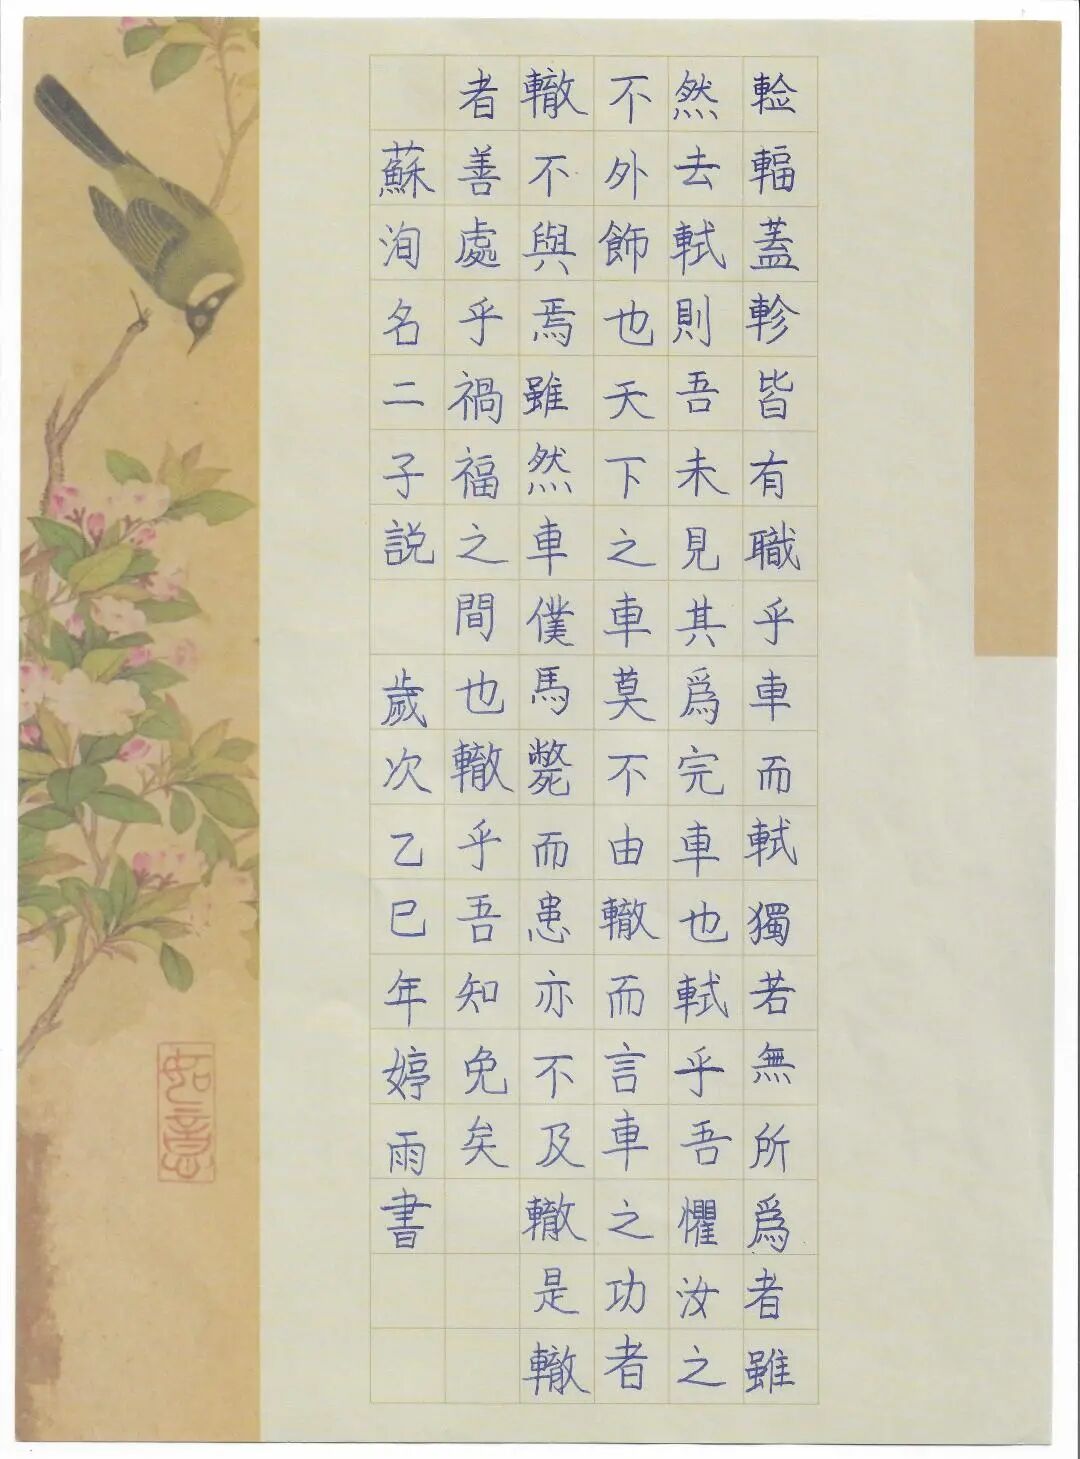 輪輻蓋軫皆有職乎車而軾獨若無所爲者雖
然去軾則吾未見其爲完車也軾乎吾懼汝之
不外飾也天下之車莫不由轍而言車之功者
轍不與焉雖然車僕馬斃而患亦不及轍是轍
者善處乎禍福之間也轍乎吾知免矣
蘇洵名二子説 歲次乙巳年婷雨書
如意